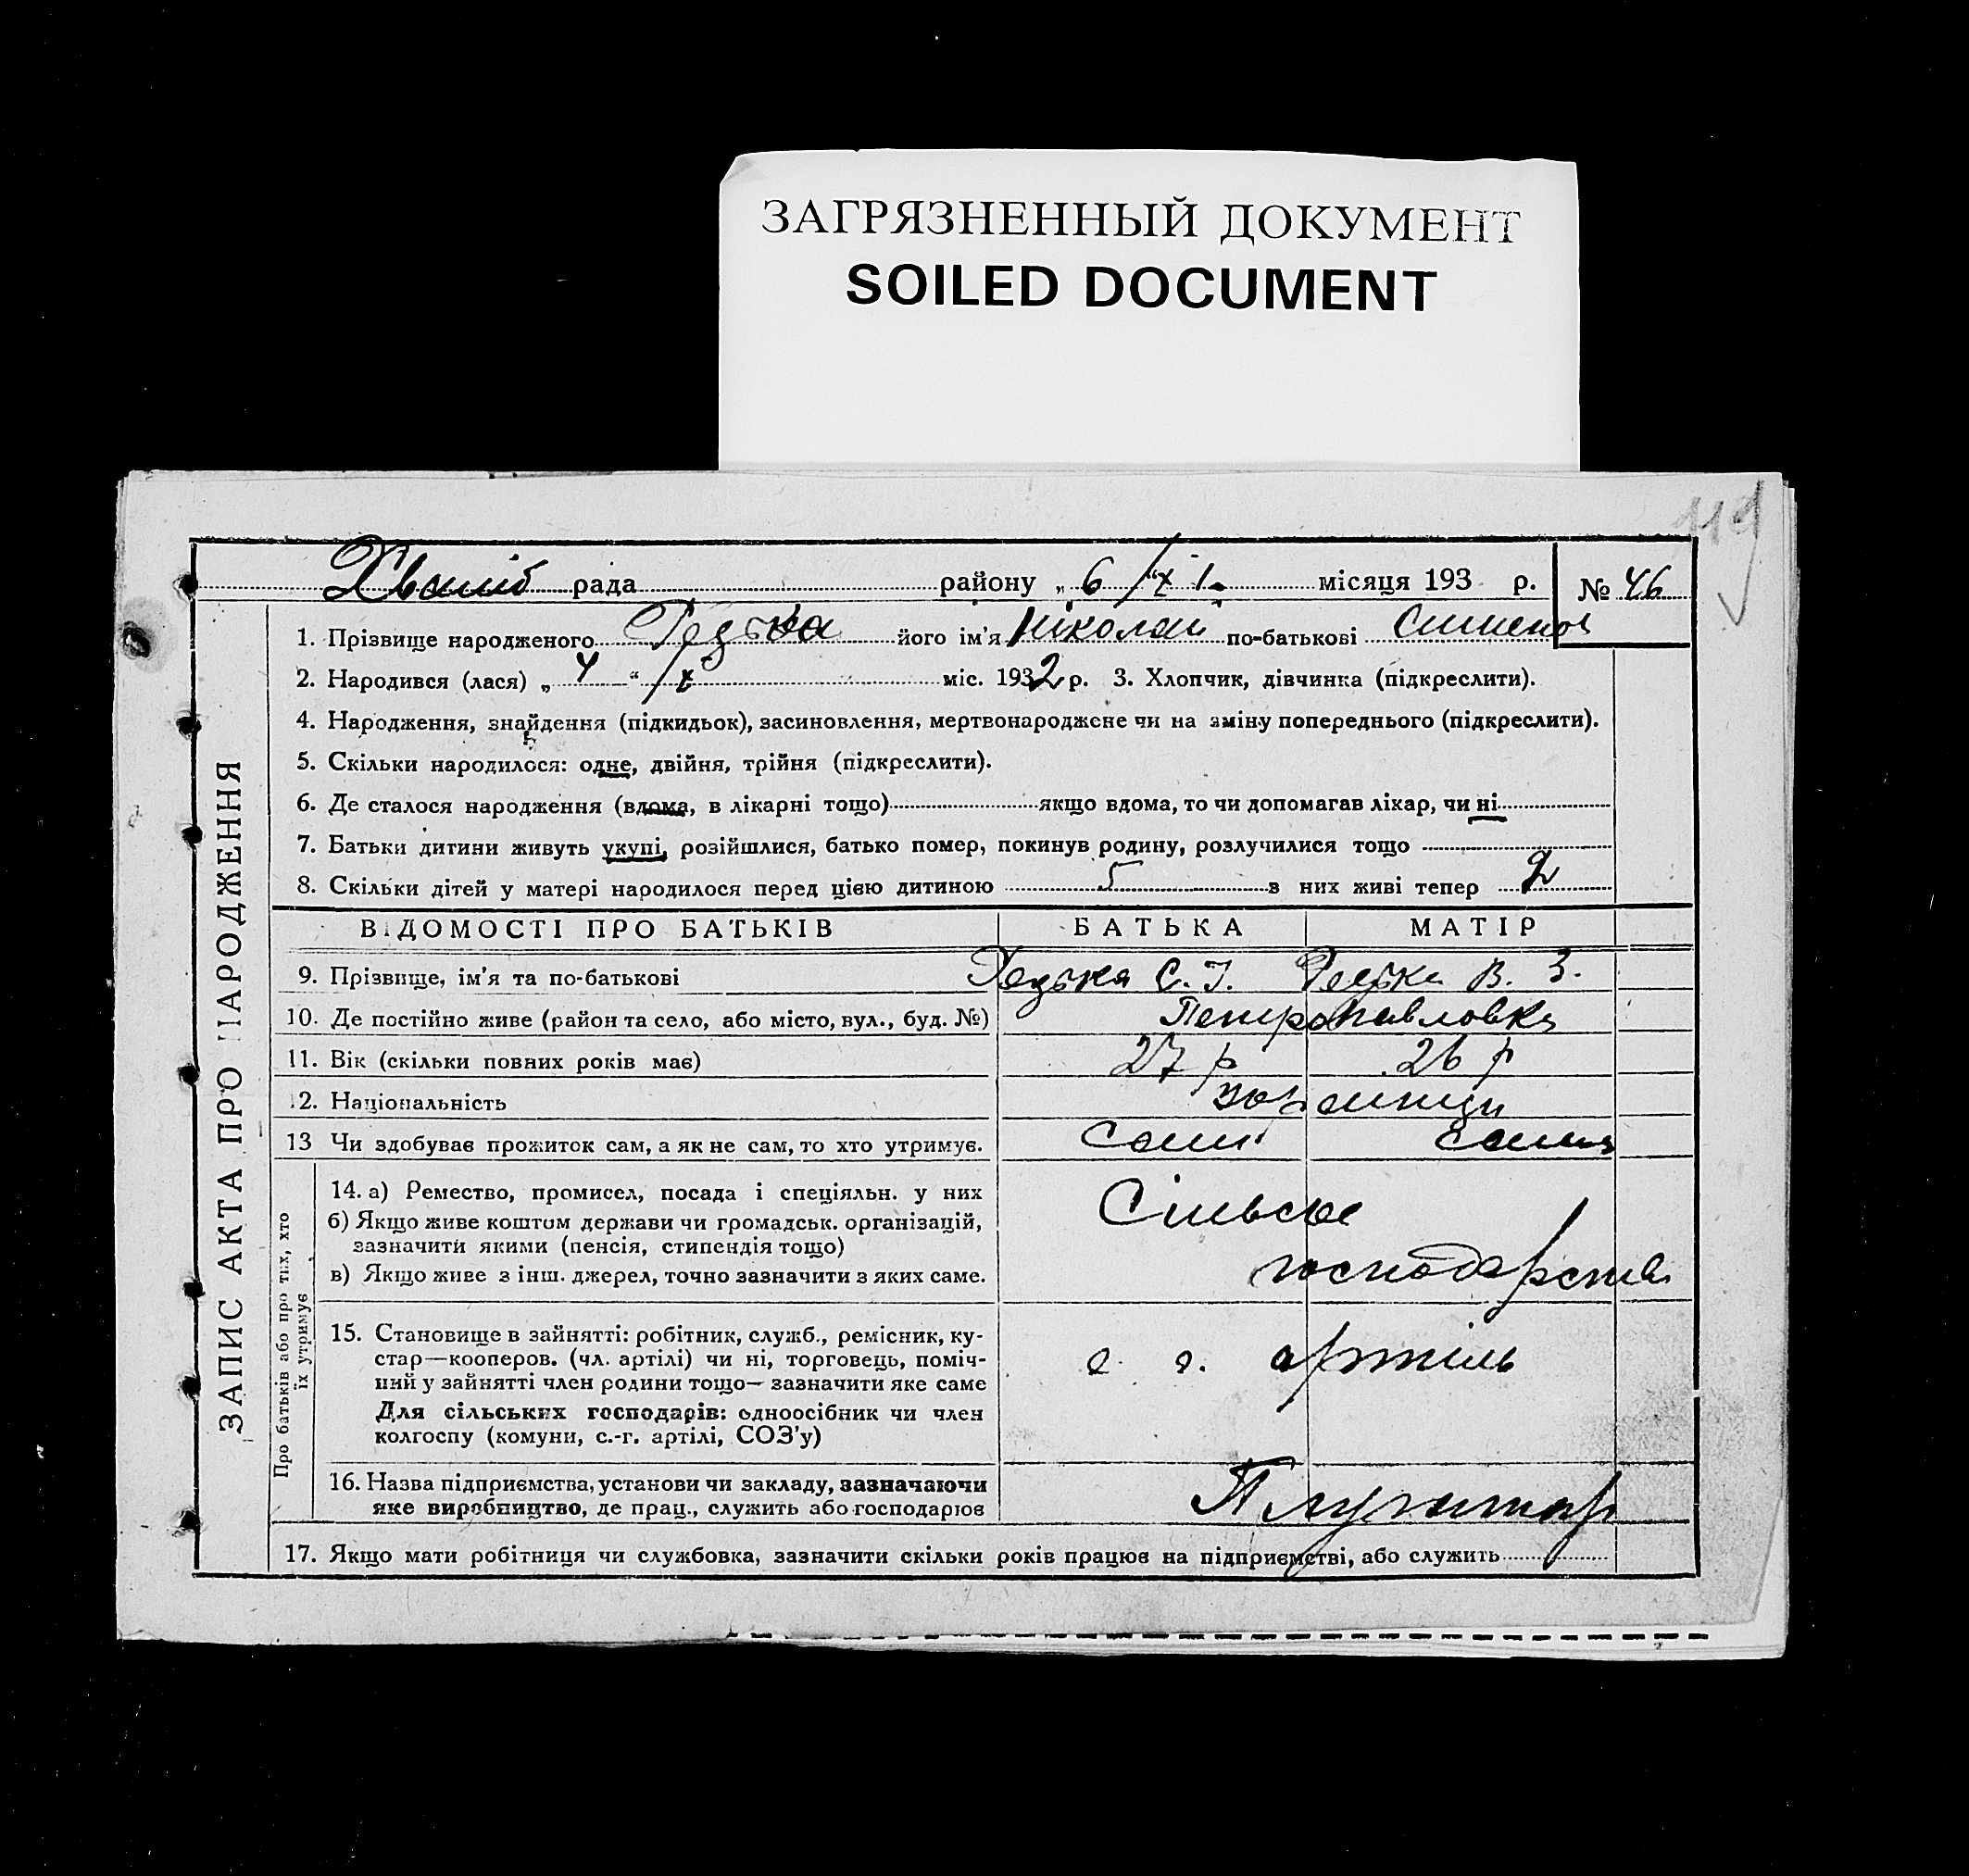 ЗАГРЯЗНЕННЫЙ ДОКУМЕНТ
SOILED DOCUMENT
119
рада району „ 6 " місяця 193 р. № 46
1. Прізвище народженого його ім'я Ніколай по-батькові
2. Народився (лася) „ 4 " міс. 1932 р. 3. Хлопчик, дівчинка (підкреслити).
4. Народження, знайдення (підкидьок), засиновлення, мертвонароджене чи на зміну попереднього (підкреслити).
5. Скільки народилося: одне, двійня, трійня (підкреслити).
6. Де сталося народження (вдома, в лікарні тощо) якщо вдома, то чи допомагав лікар, чи ні
7. Батьки дитини живуть укупі, розійшлися, батько помер, покинув родину, розлучилися тощо
8. Скільки дітей у матері народилося перед цією дитиною 5 з них живі тепер 2
ВІДОМОСТІ ПРО БАТЬКІВ БАТЬКА МАТІР
9. Прізвище, ім'я та по-батькові Редька С. І. Редька В. З.
10. Де постійно живе (район та село, або місто, вул., буд. №) Петропавловка
11. Вік (скільки повних років має) 27 р 26 р
12. Національність
13 Чи здобував прожиток сам, а як не сам, то хто утримує. сам сама
14. а) Ремество, промисел, посада і спеціяльн. у них Сільське
б) Якщо живе коштом держави чи громадськ. організацій,
зазначити якими (пенсія, стипендія тощо) господарства
в) Якщо живе з інш. джерел, точно зазначити з яких саме.
15. Становище в зайнятті: робітник, служб., ремісник, ку-
стар—кооперов. (чл. артілі) чи ні, торговець, поміч- с. г. артіль
ний у зайнятті член родини тощо— зазначити яке саме
Для сільських господарів: одноосібник чи член
колгоспу (комуни, с.-г. артілі, СОЗ'у)
16. Назва підприємства, установи чи закладу, зазначаючи
яке виробництво, де прац., служить або господарює
17. Якщо мати робітниця чи службовка, зазначити скільки років працює на підприємстві, або служить
ЗАПИС АКТА ПРО НАРОДЖЕННЯ
Про батьків або про тих, хто
їх утримує